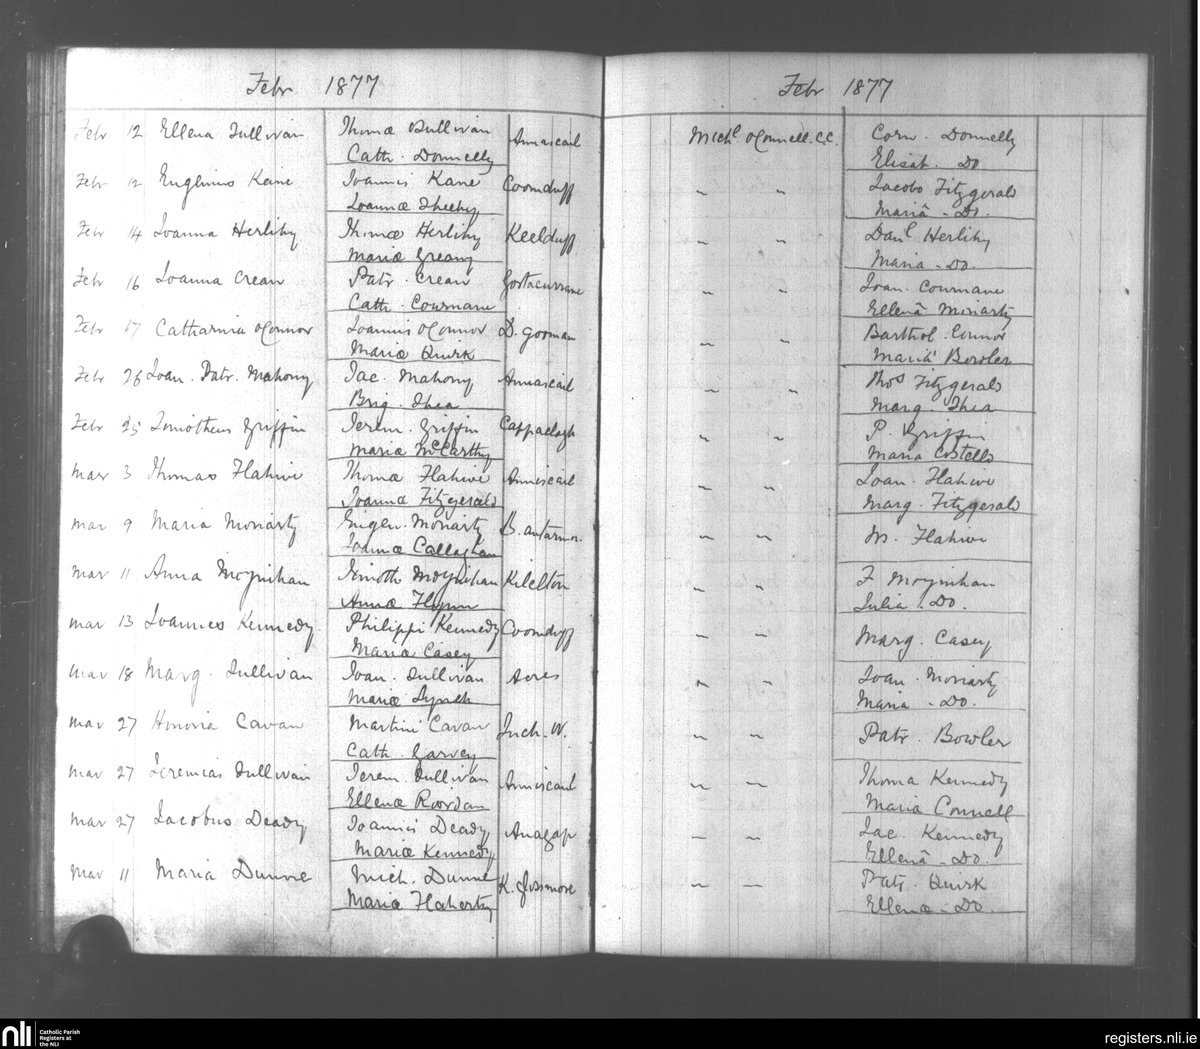 Febr 1877
Febr 12 Ellena Sullivan Thomæ Sullivan Annascail
Cath. Donnelly
Febr 12 Eugenius Kane Joannis Kane Coomduff
Joannæ Sheehy
Febr 14 Joanna Herlihy Thomæ Herlihy Keelduff
Mariæ Greany
Febr 16 Joanna Crean Patr. Crean Gortacurrane
Cath. Cournane
Febr 17 Catharina O'Connor Joannis O'Connor D. gorman
Mariæ Quirk
Febr 26 Joan. Patr. Mahony Jac. Mahony Annascail
Brig. Shea
Febr 25 Timotheus Griffin Jerem. Griffin Cappaclogh
Mariæ McCarthy
Mar 3 Thomas Flahive Thomæ Flahive Anniscail
Joannæ Fitzgerald
Mar 9 Maria Moriarty Eugen. Moriarty
Joannæ Callaghan
Mar 11 Anna Moynihan Timoth Moynihan Kilelton
Annæ Flynn
Mar 13 Joannes Kennedy Philippi Kennedy Coomduff
Maria Casey
Mar 18 Marg. Sullivan Joan. Sullivan Acres
Mariæ Lynch
Mar 27 Honoria Cavan Martini Cavan Inch. W.
Cath. Garvey
Mar 27 Jeremias Sullivan Jerem. Sullivan Anniscaul
Ellenæ Riordan
Mar 27 Jacobus Deady Joannis Deady Anagap
Mariæ Kennedy
Mar 11 Maria Dunne Mich. Dunne K. glissmore
Mariæ Flaherty
Febr 1877
Michl O'Connell. C.C. Corn. Donnelly
Elisab. Do.
" " Jacobo Fitzgerald
Mariâ - Do.
" " Danl Herlihy
Maria - Do.
" " Joan. Cournane
Ellenâ Moriarty
" " Barthol. Connor
Mariâ Bowler
" " Thos Fitzgerald
Marg. Shea
" " P. Griffin
Maria Costello
" " Joan. Flahive
Marg. Fitzgerald
" " M. Flahive
" " F Moynihan
Julia. Do.
" " Marg. Casey
" " Joan. Moriarty
Maria - Do.
" " Patr. Bowler
" " Thoma Kennedy
Mariâ Connell
" " Jac. Kennedy
Ellenâ - Do.
" " Patr. Quirk
Ellenæ - Do.
nli
Catholic Parish
Registers at
the NLI
registers.nli.ie